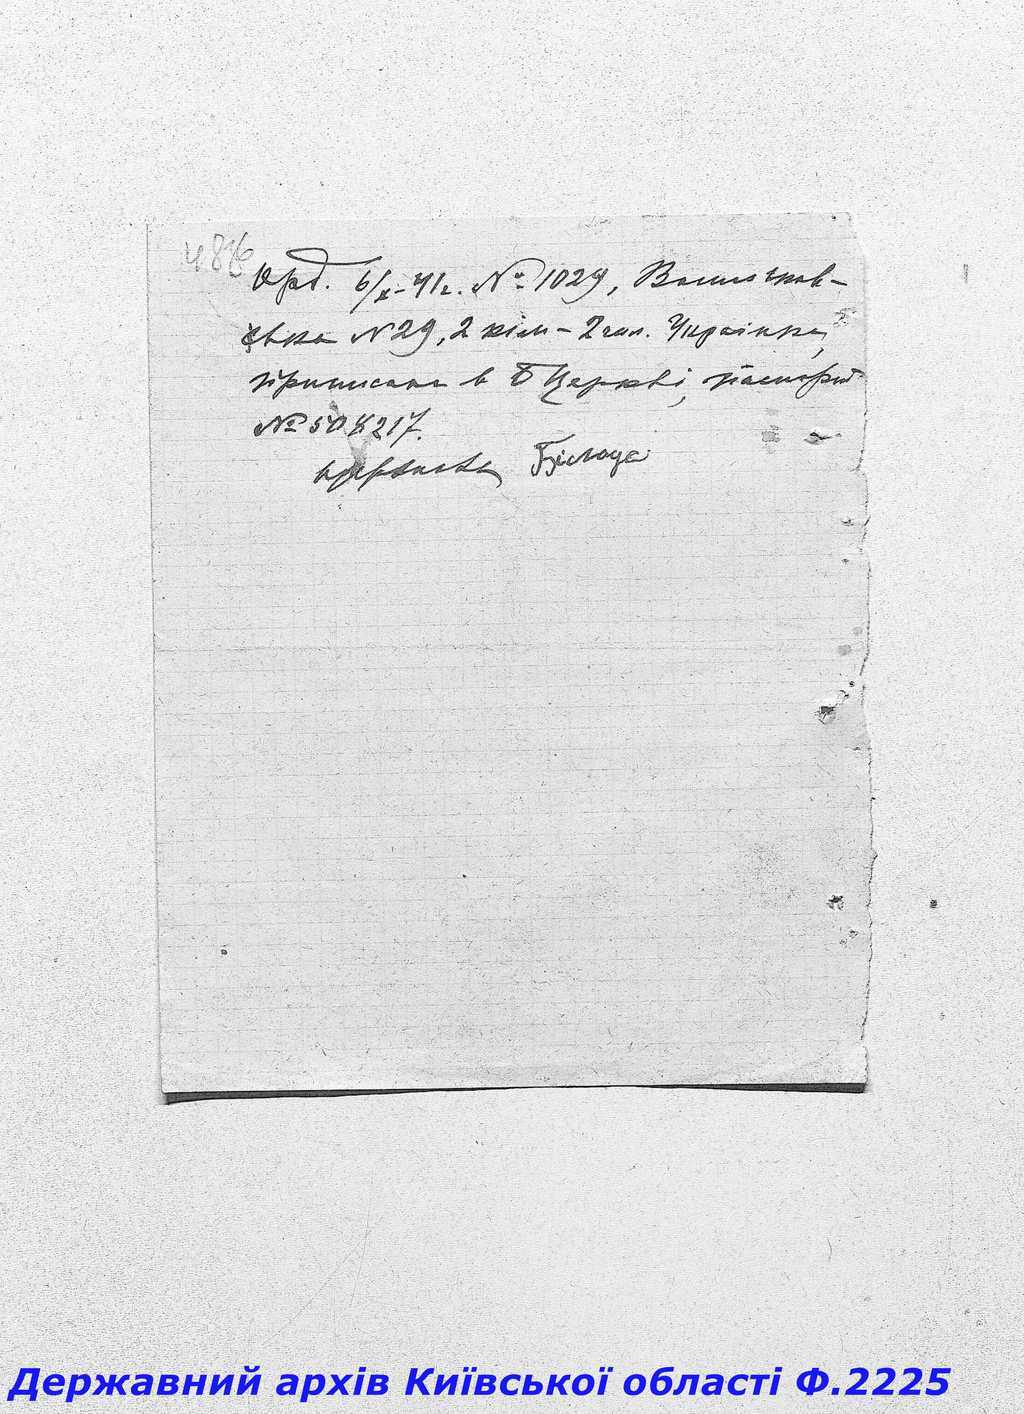 Орд. 6/X-41г. № 1029, Васильков-
ська №29, 2 кімн - 2 чол. Українка,
прописана в Б Церкві, паспорт
№ 508217.
Білоца
Державний архів Київської області Ф.2225